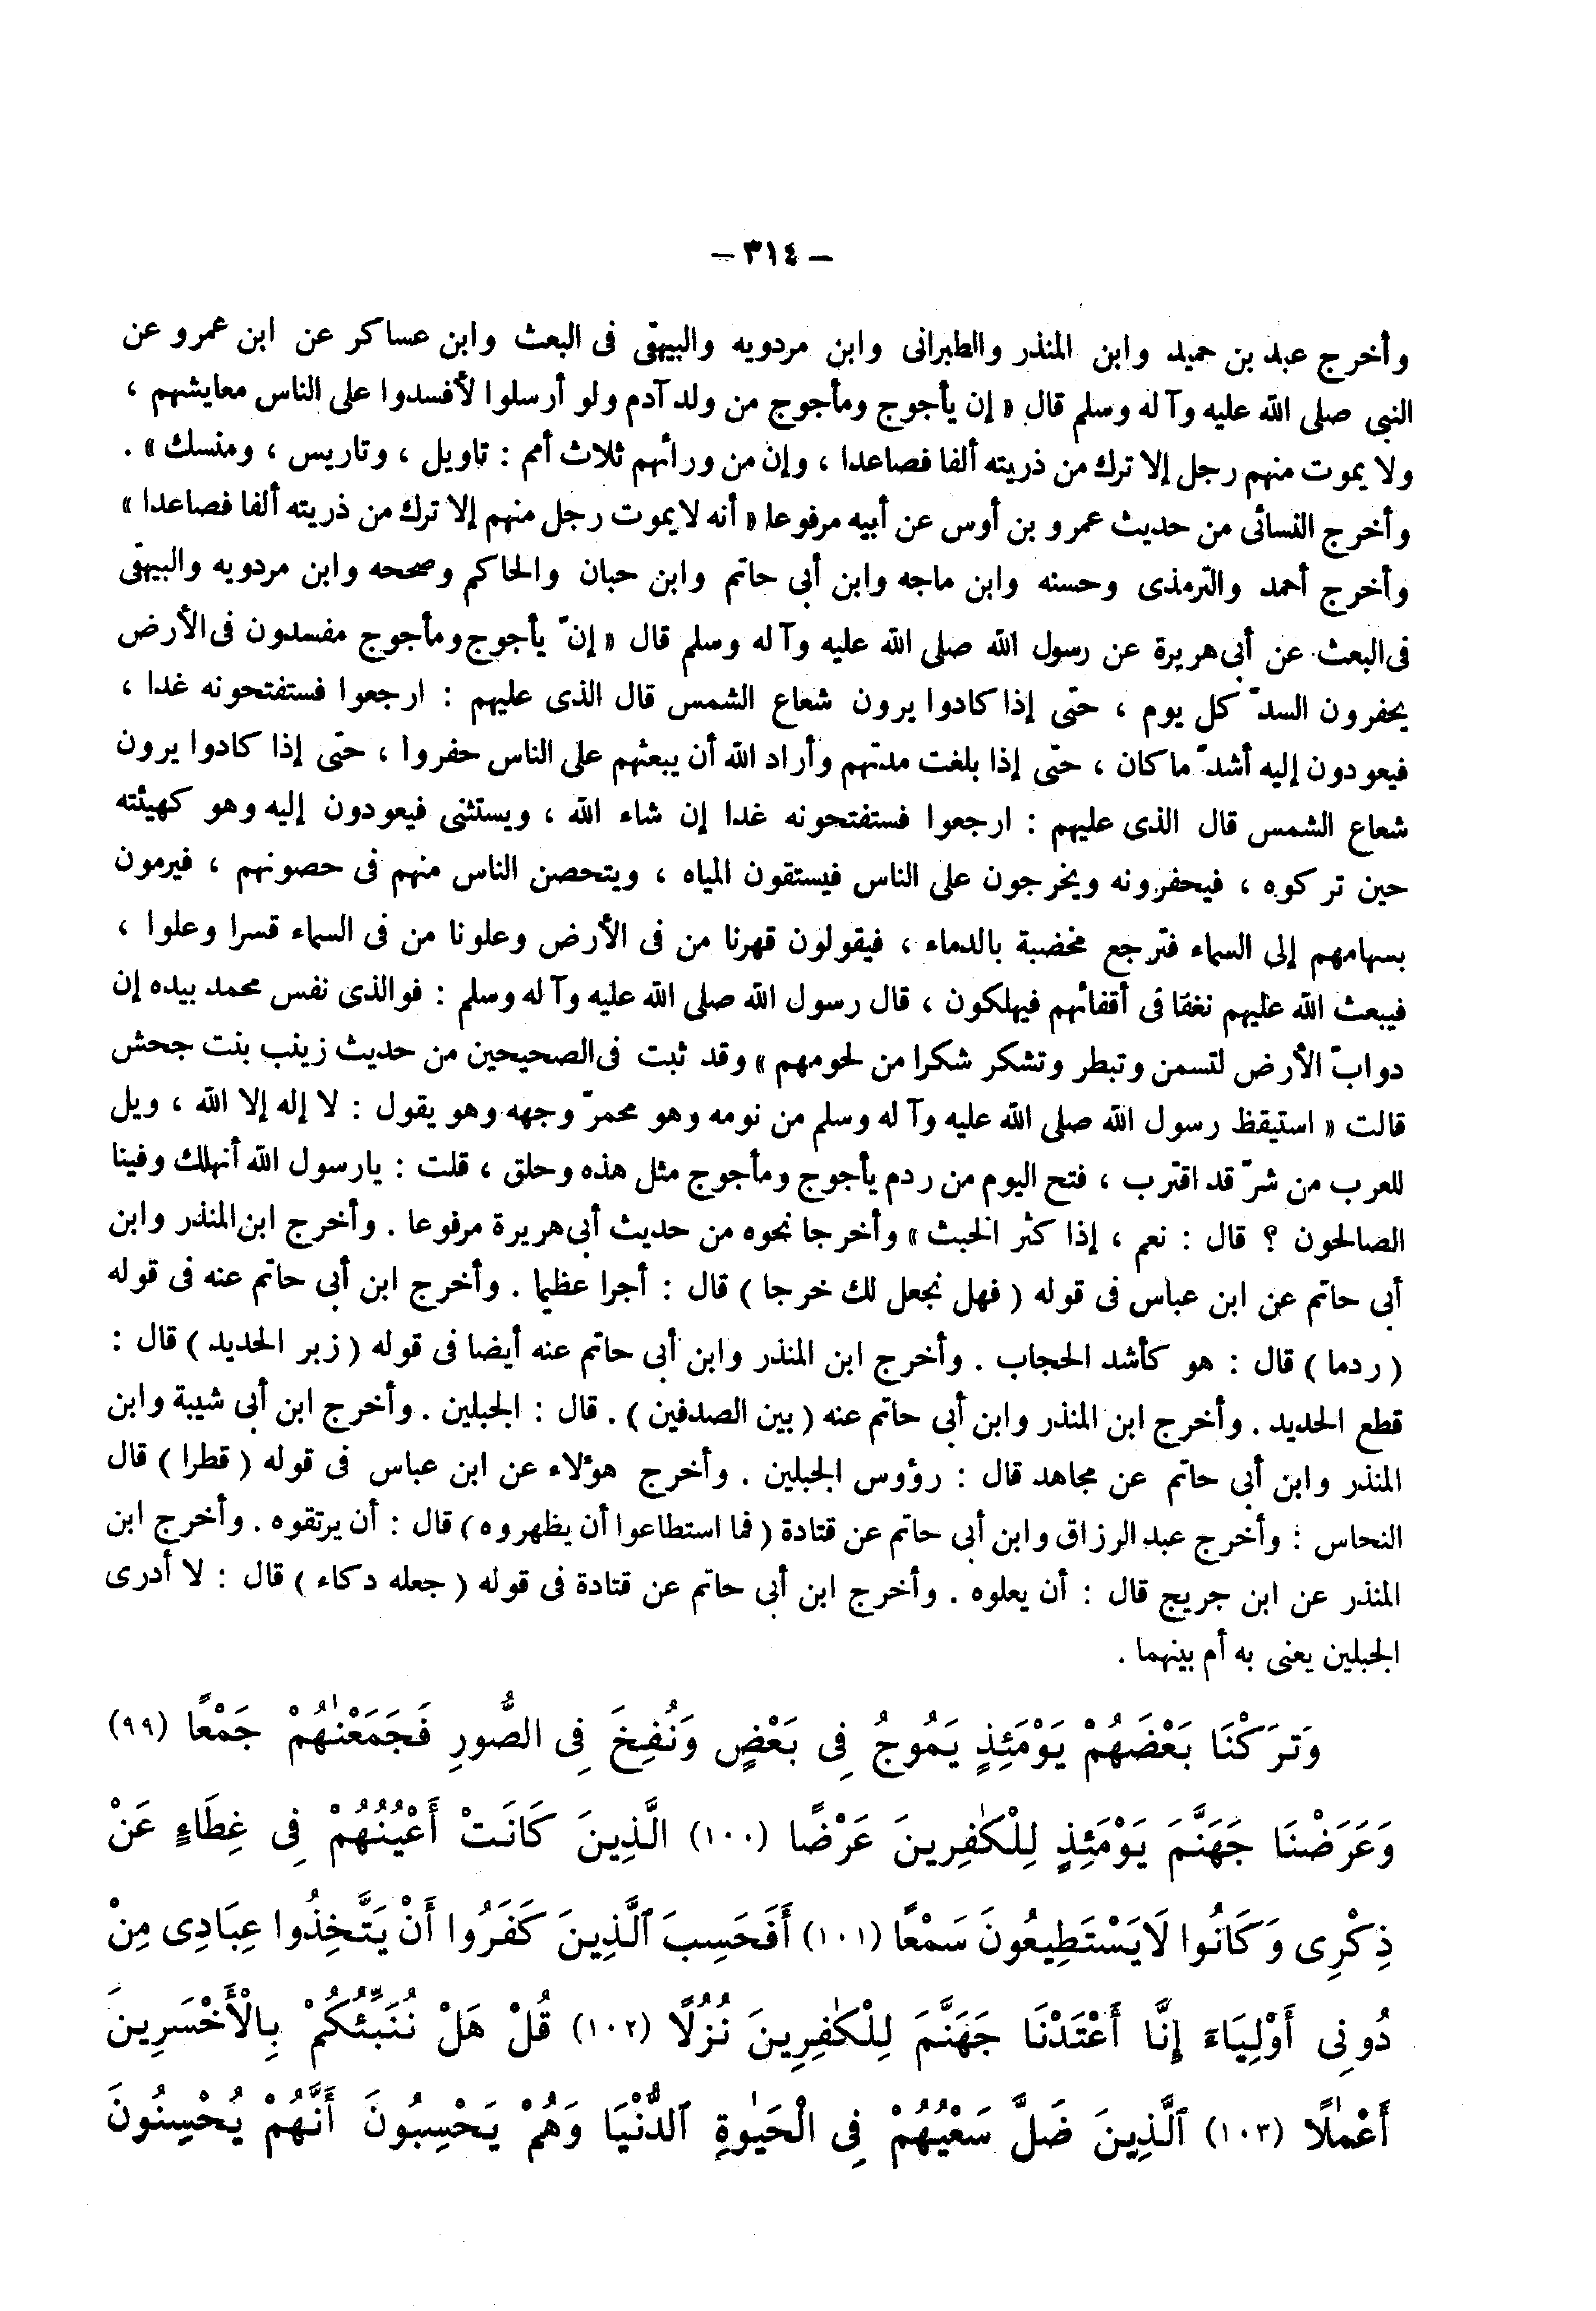 – ٣١٤ –
وأخرج عبد بن حميد وابن المنذر والطبرانى وابن مردويه والبيهقى فى البعث وابن عساكر عن ابن عمرو عن
النبى صلى الله عليه وآله وسلم قال « إن يأجوج ومأجوج من ولد آدم ولو أرسلوا لأفسدوا على الناس معايشهم ،
ولا يموت منهم رجل إلا ترك من ذريته ألفا فصاعدا ، وإن من ورائهم ثلاث أمم : تاويل ، وتاريس ، ومنسك » .
وأخرج النسائى من حديث عمرو بن أوس عن أبيه مرفوعا « أنه لا يموت رجل منهم إلا ترك من ذريته ألفا فصاعدا »
وأخرج أحمد والترمذى وحسنه وابن ماجه وابن أبى حاتم وابن حبان والحاكم وصححه وابن مردويه والبيهقى
فى البعث عن أبى هريرة عن رسول الله صلى الله عليه وآله وسلم قال « إنّ يأجوج ومأجوج مفسدون فى الأرض
يحفرون السدّ كل يوم ، حتى إذا كادوا يرون شعاع الشمس قال الذى عليهم : ارجعوا فستفتحونه غدا ،
فيعودون إليه أشدّ ما كان ، حتى إذا بلغت مدتهم وأراد الله أن يبعثهم على الناس حفروا ، حتى إذا كادوا يرون
شعاع الشمس قال الذى عليهم : ارجعوا فستفتحونه غدا إن شاء الله ، ويستثنى فيعودون إليه وهو كهيئته
حين تركوه ، فيحفرونه ويخرجون على الناس فيستقون المياه ، ويتحصن الناس منهم فى حصونهم ، فيرمون
بسهامهم إلى السماء فترجع مخضبة بالدماء ، فيقولون قهرنا من فى الأرض وعلونا من فى السماء قسرا وعلوا ،
فيبعث الله عليهم نغفا فى أقفائهم فيهلكون ، قال رسول الله صلى الله عليه وآله وسلم : فوالذى نفس محمد بيده إن
دوابّ الأرض لتسمن وتبطر وتشكر شكرا من لحومهم » وقد ثبت فى الصحيحين من حديث زينب بنت جحش
قالت « استيقظ رسول الله صلى الله عليه وآله وسلم من نومه وهو محمرّ وجهه وهو يقول : لا إله إلا الله ، ويل
للعرب من شرّ قد اقترب ، فتح اليوم من ردم يأجوج ومأجوج مثل هذه وحلق ، قلت : يارسول الله أنهلك وفينا
الصالحون ؟ قال : نعم ، إذا كثر الخبث » وأخرجا نحوه من حديث أبى هريرة مرفوعا . وأخرج ابن المنذر وابن
أبى حاتم عن ابن عباس فى قوله ( فهل نجعل لك خرجا ) قال : أجرا عظيما . وأخرج ابن أبى حاتم عنه فى قوله
( ردما ) قال : هو كأشد الحجاب . وأخرج ابن المنذر وابن أبى حاتم عنه أيضا فى قوله ( زبر الحديد ) قال :
قطع الحديد . وأخرج ابن المنذر وابن أبى حاتم عنه ( بين الصدفين ) . قال : الجبلين . وأخرج ابن أبى شيبة وابن
المنذر وابن أبى حاتم عن مجاهد قال : رؤوس الجبلين . وأخرج هؤلاء عن ابن عباس فى قوله ( قطرا ) قال
النحاس : وأخرج عبد الرزاق وابن أبى حاتم عن قتادة ( فما استطاعوا أن يظهروه ) قال : أن يرتقوه . وأخرج ابن
المنذر عن ابن جريج قال : أن يعلوه . وأخرج ابن أبى حاتم عن قتادة فى قوله ( جعله دكاء ) قال : لا أدرى
الجبلين يعنى به أم بينهما .
وَتَرَكْنَا بَعْضَهُمْ يَوْمَئِذٍ يَمُوجُ فِى بَعْضٍ وَنُفِخَ فِى الصُّورِ فَجَمَعْنٰهُمْ جَمْعًا (٩٩)
وَعَرَضْنَا جَهَنَّمَ يَوْمَئِذٍ لِلْكٰفِرِينَ عَرْضًا (١٠٠) الَّذِينَ كَانَتْ أَعْيُنُهُمْ فِى غِطَاءٍ عَنْ
ذِكْرِى وَكَانُوا لَايَسْتَطِيعُونَ سَمْعًا (١٠١) أَفَحَسِبَ ٱلَّذِينَ كَفَرُوا أَنْ يَتَّخِذُوا عِبَادِى مِنْ
دُونِى أَوْلِيَاءَ إِنَّا أَعْتَدْنَا جَهَنَّمَ لِلْكٰفِرِينَ نُزُلًا (١٠٢) قُلْ هَلْ نُنَبِّئُكُمْ بِالْأَخْسَرِينَ
أَعْمٰلًا (١٠٣) ٱلَّذِينَ ضَلَّ سَعْيُهُمْ فِى الْحَيٰوةِ ٱلدُّنْيَا وَهُمْ يَحْسِبُونَ أَنَّهُمْ يُحْسِنُونَ